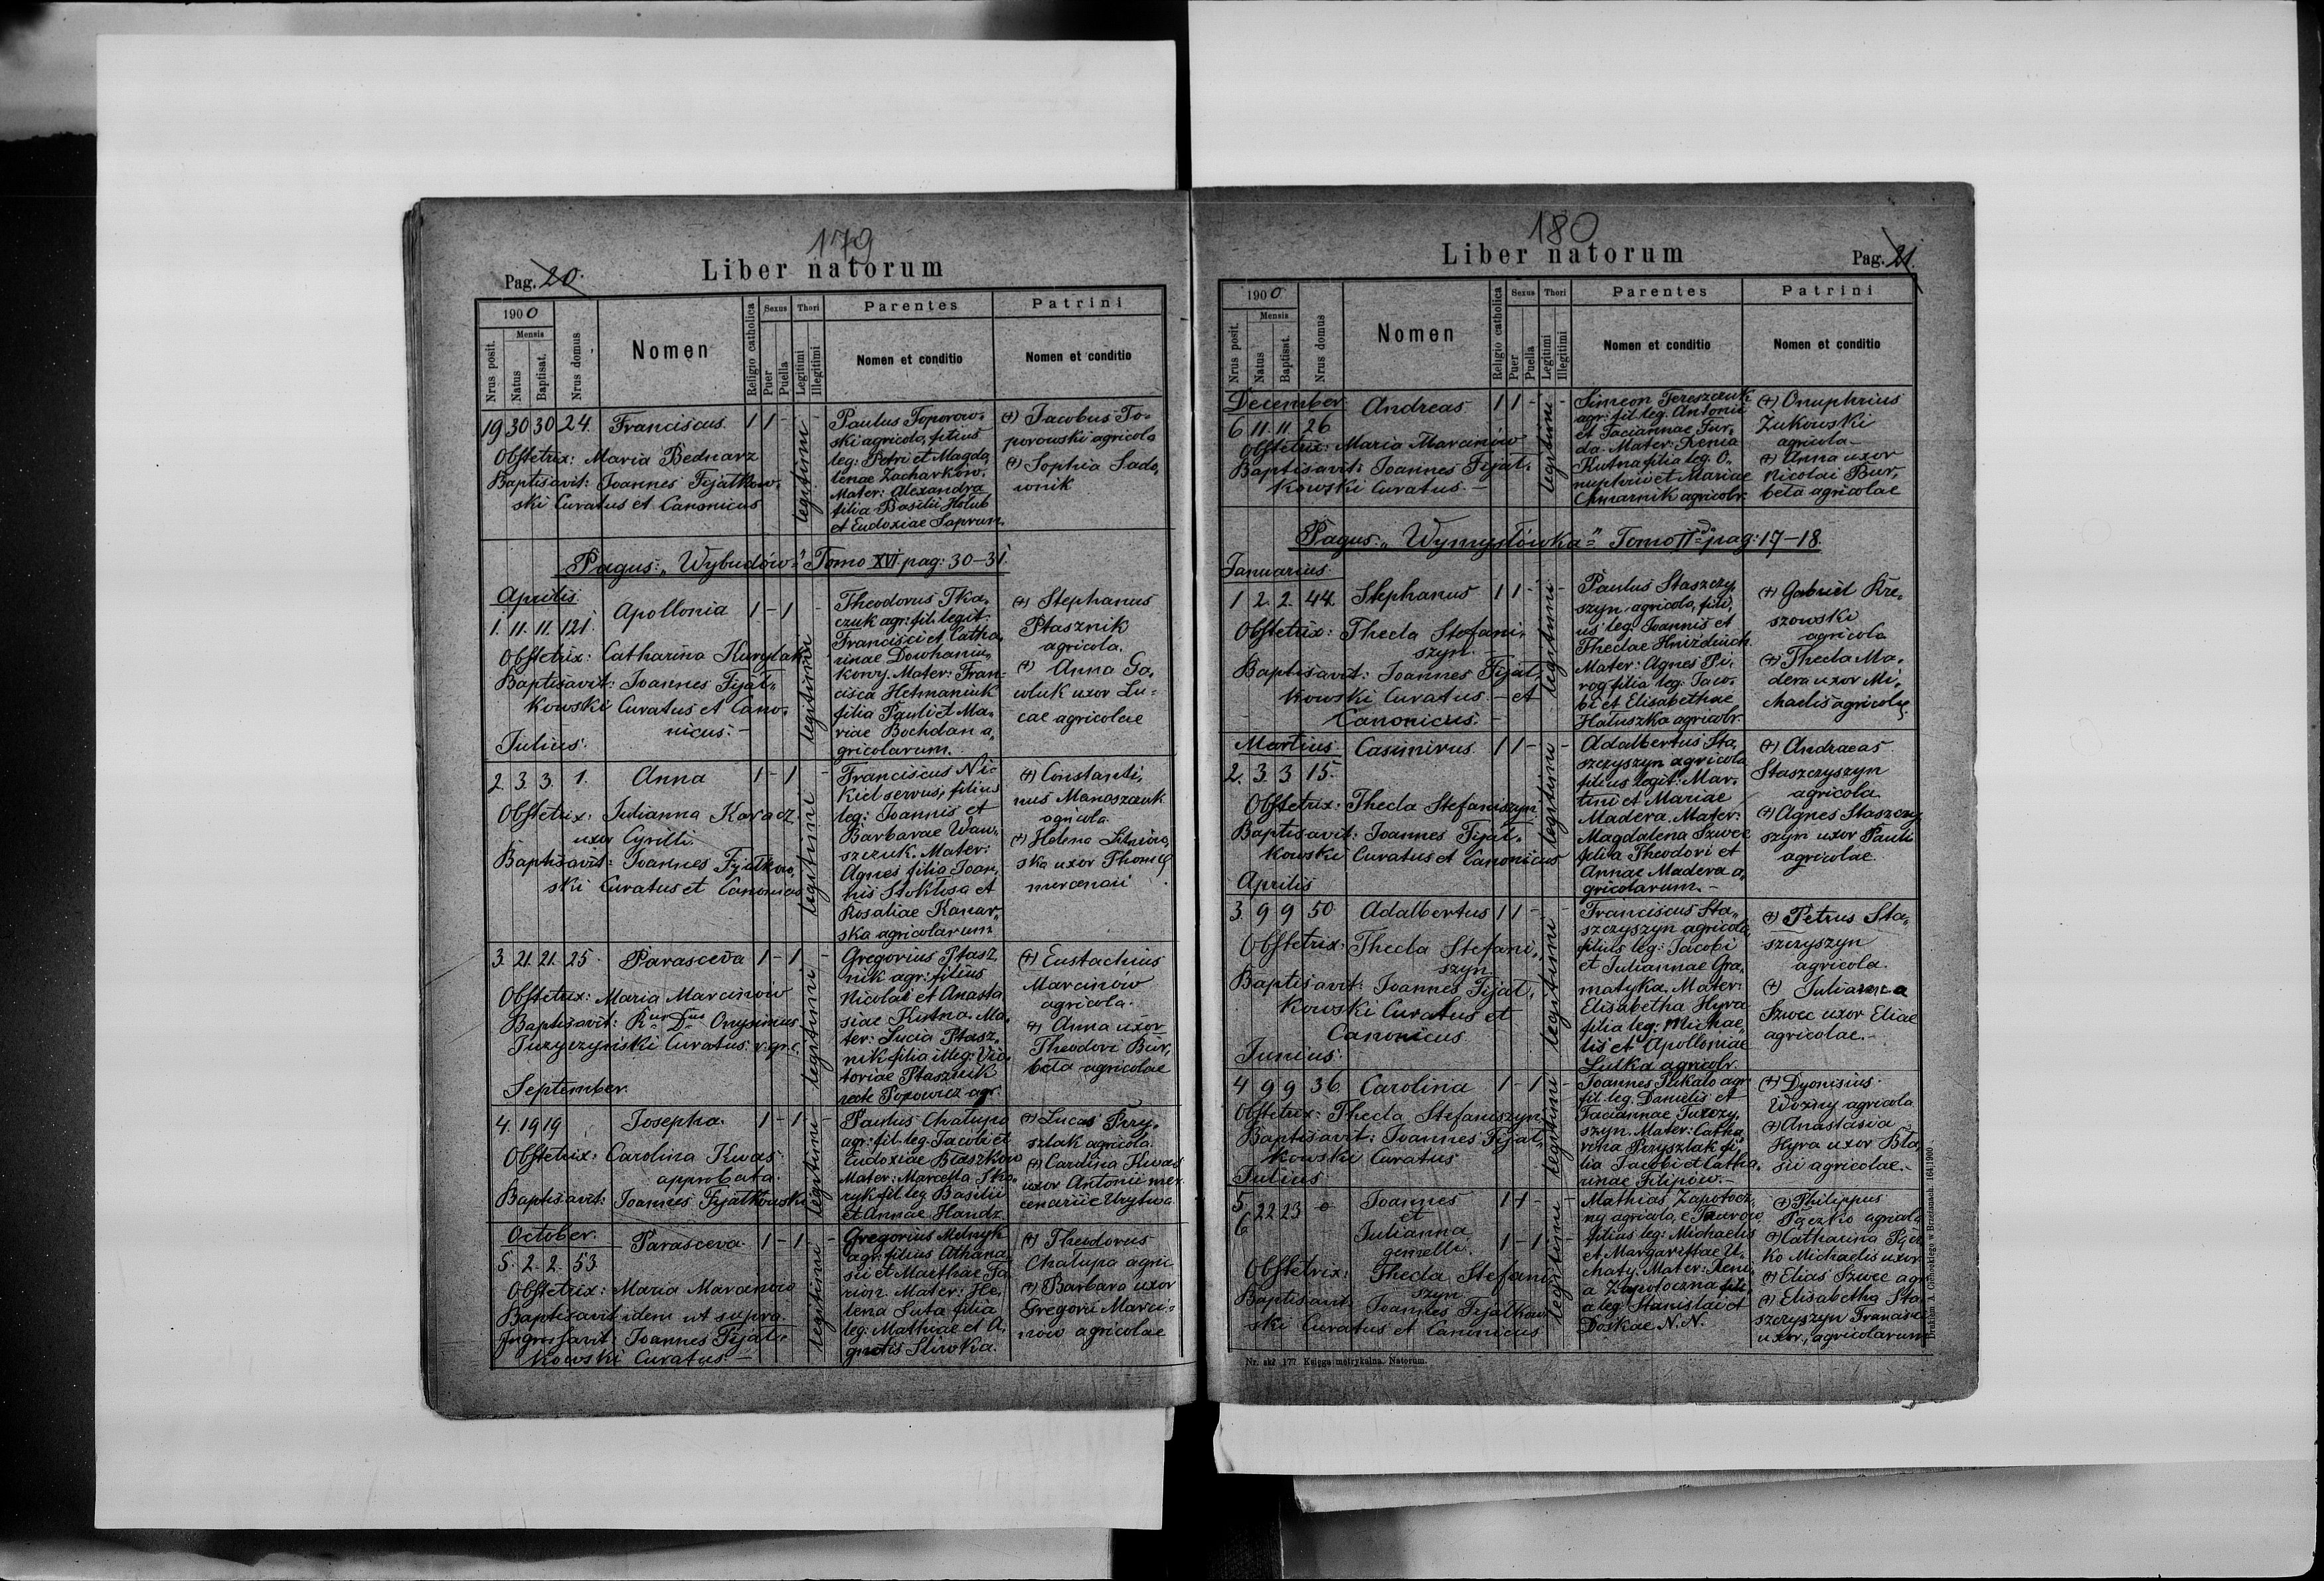 179
Liber natorum
Pag. 20.
1900
Mensis
Nrus posit.
Natus
Baptisat.
Nrus domus
Nomen
Religio catholica
Sexus
Puer
Puella
Thori
Legitimi
Illegitimi
Parentes
Nomen et conditio
Patrini
Nomen et conditio
19 30 30 24. Franciscus 1 1 - legitimi -
Obstetrix: Maria Bednarz
Baptisavit: Joannes Fijałkow„
ski Curatus et Canonicus
Paulus Toporow„
ski agricola, filius
leg: Petri et Magda„
lenae Zacharków.
Mater: Alexandra
filia Basilii Hołub
et Eudoxiae Saprun.
(+) Jacobus To„
porowski agricola
(+) Sophia Sado„
wnik
Pagus: „Wybudów" Tomo XVI. pag: 30-31.
Aprilis
1. 11. 11. 121. Apollonia 1 - 1 legitimi -
Obstetrix: Catharina Kurylak
Baptisavit: Joannes Fijał„
kowski Curatus et Cano„
nicus. -
Theodorus Tka„
czuk agr: fil. legit.
Francisci et Catha„
rinae Dowhaniu„
kowy. Mater: Fran=
cisca Hetmaniuk
filia Pauli et Ma„
riae Bochdan a„
gricolarum.
(+) Stephanus
Ptasznik
agricola.
(+) Anna Ga„
wluk uxor Lu=
cae agricolae
Julius.
2. 3. 3. 1. Anna 1 - 1 legitimi -
Obstetrix: Julianna Karacz
uxor Cyrilli.
Baptisavit: Joannes Fijałkow„
ski Curatus et Canonicus
Franciscus Ni-
kiel servus, filius
leg: Joannis et
Barbarae Waw„
szczuk. Mater:
Agnes filia Joan„
nis Stokłosa et
Rosaliae Kanar„
ska agricolarum
(+) Constanti„
nus Manaszczuk
agricola.
(+) Helena
ska uxor Thomae
mercenarii
3. 21. 21. 25. Parasceva 1 - 1 legitimi -
Obstetrix: Maria Marcinów
Baptisavit: Rndus Dnus Onysimus
Curatus r. gr. c.
Gregorius Ptasz„
nik agr: filius
Nicolai et Anasta
siae Kutna. Ma„
ter: Lucia Ptasz„
nik filia illeg: Vic„
toriae Ptasznik
recte Popowicz agr.
(+) Eustachius
Marcinów
agricola.
(+) Anna uxor
Theodori Bur„
beła agricolae
September.
4. 19 19 Josepha. 1 - 1 legitimi -
Obstetrix: Carolina Kwas
approbata
Baptisavit: Joannes Fijałkowski
Paulus Chałupa
agr: fil. leg. Jacobi et
Eudoxiae Błaszków
Mater: Marcella Sko„
ryk fil leg Basilii
et Annae Handz
(+) Lucas Przy„
szlak agricola.
(+) Carolina Kwas
uxor Antonii mer„
cenarii e Urytwa
October.
5. 2. 2. 53. Parasceva. 1 - 1 legitimi -
Obstetrix: Maria Marcinów
Baptisavit idem ut supra
Ingrossavit: Joannes Fijał„
kowski Curatus -
Gregorius Melnyk
agr: filius Athana„
sii et Marthae Ta„
rion. Mater: He„
lena Luta filia
leg: Mathiae et A„
gnetis Sliwka.
(+) Theodorus
Chałupa agric.
(+) Barbara uxor
Gregorii Marci„
nów agricolae
180
Liber natorum
Pag. 21.
1900
Mensis
Nrus posit.
Natus
Baptisat.
Nrus domus
Nomen
Religio catholica
Sexus
Puer
Puella
Thori
Legitimi
Illegitimi
Parentes
Nomen et conditio
Patrini
Nomen et conditio
December.
6 11. 11. 26 Andreas 1 1 - legitimi -
Obstetrix: Maria Marcinów
Baptisavit: Joannes Fijał„
kowski Curatus. -
Simeon Tereszczuk
agr: fil. leg. Antonii
et Taciannae Fur„
da. Mater: Xenia
Kutna filia leg. O„
nuphrii et Mariae
Chmarnik agricolr.
(+) Onuphrius
Żukowski
agricola -
(+) Anna uxor
Nicolai Bur„
beła agricolae
Pagus: „Wymysłówka" Tomo IIdo pag: 17-18.
Januarius.
1 2. 2. 44. Stephanus 1 1 - legitimi -
Obstetrix: Thecla Stefani„
szyn. -
Baptisavit: Joannes Fijał„
kowski Curatus. - et
Canonicus. -
Paulus Staszczy„
szyn agricola, fili„
us leg: Joannis et
Theclae Hnizdiuch.
Mater: Agnes Pi„
rog filia leg: Jaco„
bi et Elisabethae
Hałuszka agricolr.
(+) Gabriel Kre„
szowski
agricola
(+) Thecla Ma„
dera uxor Mi„
chaelis agricolae
Martius.
2. 3. 3 15. Casimirus 1 1 - legitimi -
Obstetrix: Thecla Stefaniszyn
Baptisavit: Joannes Fijał„
kowski Curatus et Canonicus
Adalbertus Sta„
szczyszyn agricola
filius legit: Mar„
tini et Mariae
Madera. Mater:
Magdalena Szwec
filia Theodori et
Annae Madera a„
gricolarum. -
(+) Andraeas
Staszczyszyn
agricola.
(+) Agnes Staszczy„
szyn uxor Pauli
agricolae.
Aprilis
3. 9 9 50 Adalbertus 1 1 - legitimi -
Obstetrix: Thecla Stefani„
szyn
Baptisavit: Joannes Fijał„
kowski Curatus et
Canonicus
Franciscus Sta„
szczyszyn agricola,
filius leg: Jacobi
et Juliannae Gra„
matyka. Mater:
Elisabetha Hyra
filia leg: Michae„
lis et Apolloniae
Lutka agricolr.
(+) Petrus Sta„
szczyszyn
agricola.
(+) Julianna
Szwec uxor Eliae
agricolae. -
Junius.
4 9 9 36 Carolina 1 - 1 legitimi -
Obstetrix: Thecla Stefaniszyn
Baptisavit: Joannes Fijał„
kowski Curatus
Joannes Pukało agr.
fil. leg. Danielis et
Taciannae Tuzczy„
szyn. Mater: Catha„
rina Przyszlak fi„
lia Jacobi et Catha„
rinae Filipów. -
(+) Dyonisius
Woźny agricola
(+) Anastasia
Hyra uxor Bła„
sii agricolae. -
Julius
5
6 22 23 o Joannes 1 1 - legitimi -
et
Julianna 1 - 1 -
gemelli.
Obstetrix: Thecla Stefani„
szyn
Baptisavit: Joannes Fijałkow„
ski Curatus et Canonicus
Mathias Zapotocz„
ny agricola, e Taurow
filius leg: Michaelis
et Margarittae U„
chaty. Mater: Xeni„
a Zapotoczna fili„
a leg: Stanislai et
Doskae N. N.
(+) Philippus
Pączko agricola
(+) Catharina Pącz„
ko Michaelis uxor
(+) Elias Szwec agr.
(+) Elisabetha Sta„
szczyszyn Francisci
uxor, agricolarum
Nr. skł. 177. Księga metrykalna. Natorum.